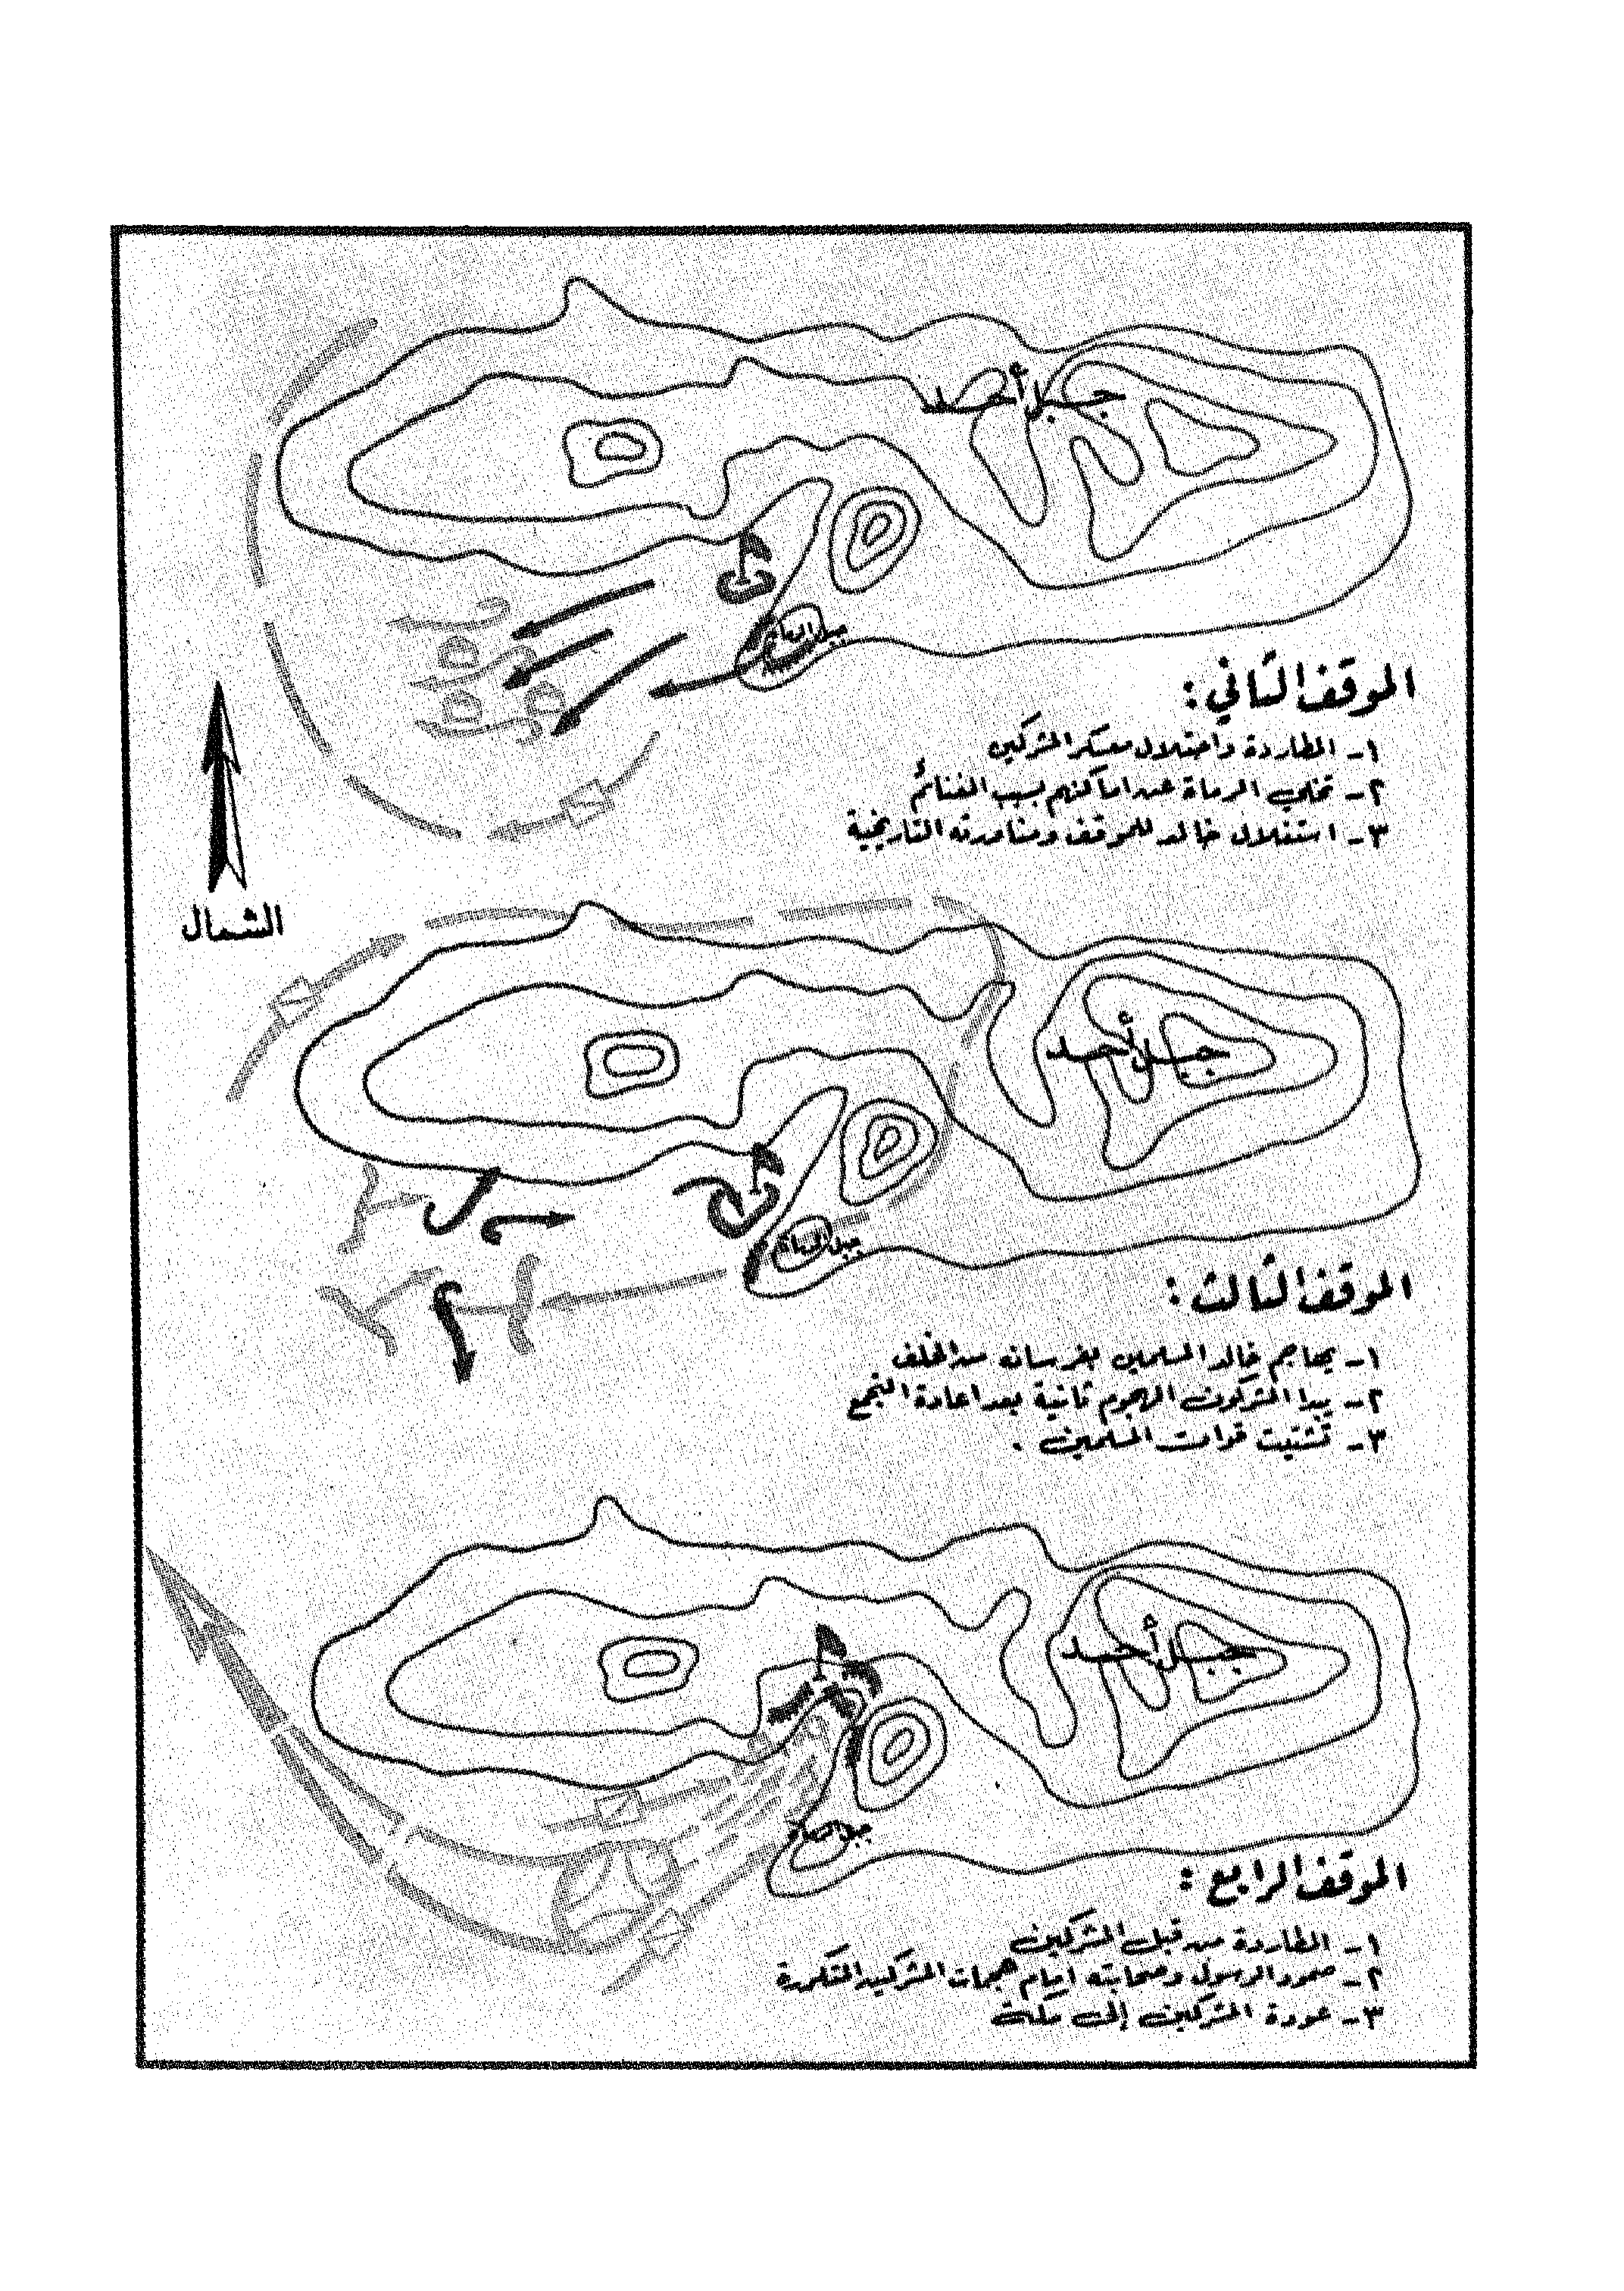 جبل أحد
جبل الرماة
الموقف الثاني :
١- المطاردة واحتلال معسكر المشركين
٢- تخلي الرماة عن اماكنهم بسبب الغنائم
٣- استغلال خالد للموقف ومناورته التاريخية
الشمال
جبل أحد
جبل الرماة
الموقف الثالث :
١- يهاجم خالد المسلمين بفرسانه من الخلف
٢- يبدا المشركون الهجوم ثانية بعد اعادة التجمع
٣- تشتيت قوات المسلمين .
جبل أحد
جبل الرماة
الموقف الرابع :
١- المطاردة من قبل المشركين
٢- صمود الرسول وصحابته امام هجمات المشركين المتكررة
٣- عودة المشركين إلى مكة